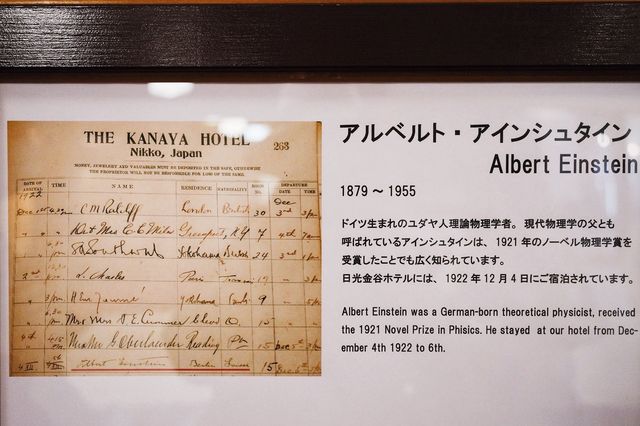 THE KANAYA HOTEL
Nikko, Japan
263
MONEY, JEWELERY AND VALUABLES MUST BE DEPOSITED IN THE SAFE, OTHERWISE
THE PROPRIETOR WILL NOT BE RESPONSIBLE FOR LOSS OF THE SAME.
DATE OF ARRIVAL TIME NAME RESIDENCE NATIONALITY ROOM NO. DEPARTURE DATE TIME
1922 Dec
C M Ratcliff London British 30 3rd
7 4th
Yokohama British 24 3rd
2nd Paris
Yokohama 9
15
4th Reading Pa 15 Dec 5th
Albert Einstein Berlin 15 Dec 6th
アルベルト・アインシュタイン
Albert Einstein
1879 ~ 1955
ドイツ生まれのユダヤ人理論物理学者。現代物理学の父とも
呼ばれているアインシュタインは、1921年のノーベル物理学賞を
受賞したことでも広く知られています。
日光金谷ホテルには、1922年12月4日にご宿泊されています。
Albert Einstein was a German-born theoretical physicist, received
the 1921 Novel Prize in Phisics. He stayed at our hotel from Dec-
ember 4th 1922 to 6th.